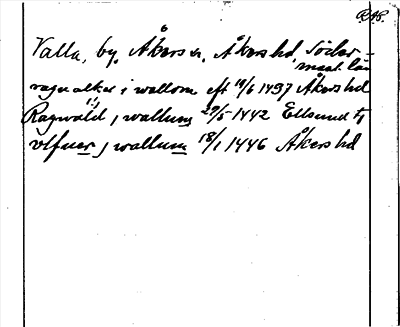 Valla, by, Åkers sn, Åkers hd, Söder-
manl. län
ragualker i wallom eft 19/6 1437 Åkers hd
Ragwald j wallum 29/5 1442 Ellsund ty
vlfuer j wallum 18/1 1446 Åkers hd